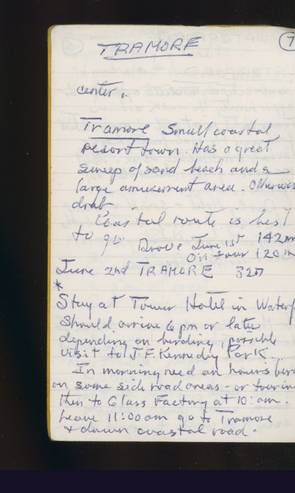 TRAMORE
7
center.
Tramore Small coastal
resort town. Has a great
sweep of sand beach and a
large amusement area. Otherwise
drab.
Coastal route is best
to go. Drove June 1st 142 m
On tour 120 m
June 2nd TRAMORE
*
Stay at Tower Hotel in Waterf
Should arrive 6 pm or later
depending on birding, possible
visit to J.F. Kennedy Park.
In morning need an hours bird
on some side road areas - or touring
then to Glass Factory at 10: am.
Leave 11:00 am go to Tramore
& down coastal road.